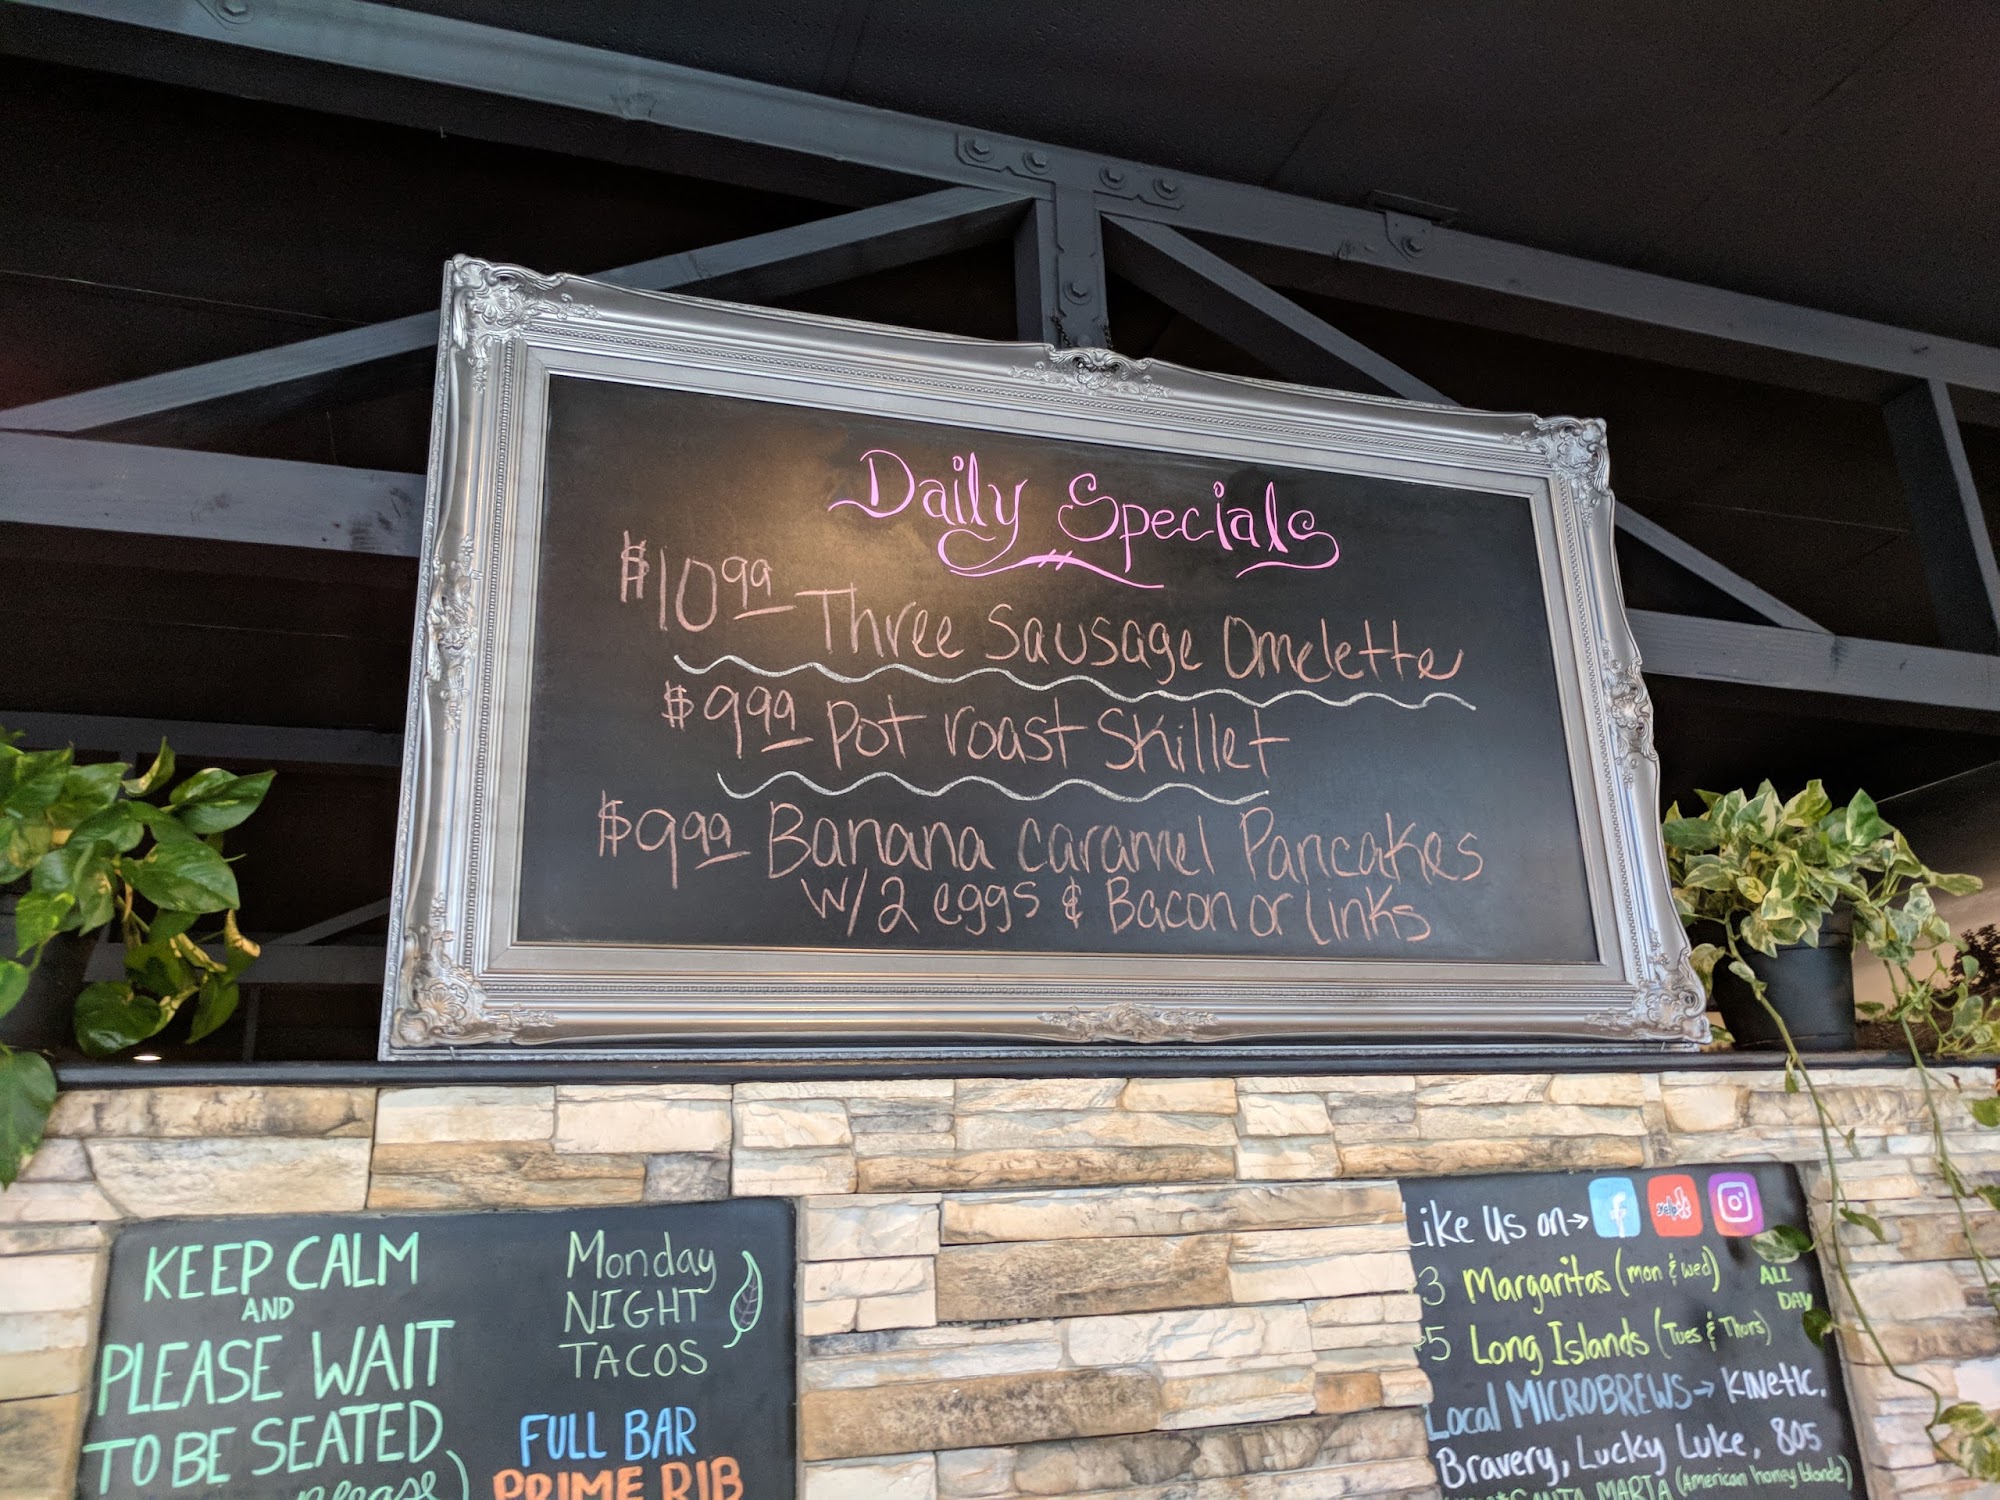 Daily Specials
$10.99 Three Sausage Omelette
$9.99 Pot roast Skillet
$9.99 Banana caramel Pancakes
w/2 eggs & Bacon or links
KEEP CALM
AND
PLEASE WAIT
TO BE SEATED
please
Monday
NIGHT
TACOS
FULL BAR
PRIME RIB
Like Us on→ f yelp
$3 Margaritas (mon & wed) ALL DAY
$5 Long Islands (Tues & Thurs)
Local MICROBREWS→ KINETIC,
Bravery, Lucky Luke, 805
SANTA MARIA (American honey blonde)